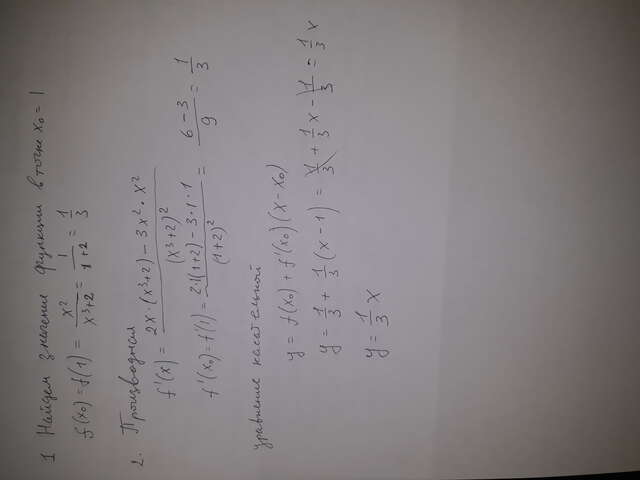 1 Найдем значение функции в точке x₀ = 1
f(x₀) = f(1) = x²/(x³+2) = 1/(1+2) = 1/3
2. Производная
f'(x) = (2x·(x³+2) – 3x²·x²)/(x³+2)²
f'(x₀) = f'(1) = (2·1(1+2) – 3·1·1)/(1+2)² = (6–3)/9 = 1/3
уравнение касательной
y = f(x₀) + f'(x₀)(x – x₀)
y = 1/3 + 1/3(x – 1) = 1/3 + 1/3x – 1/3 = 1/3 x
y = 1/3 x